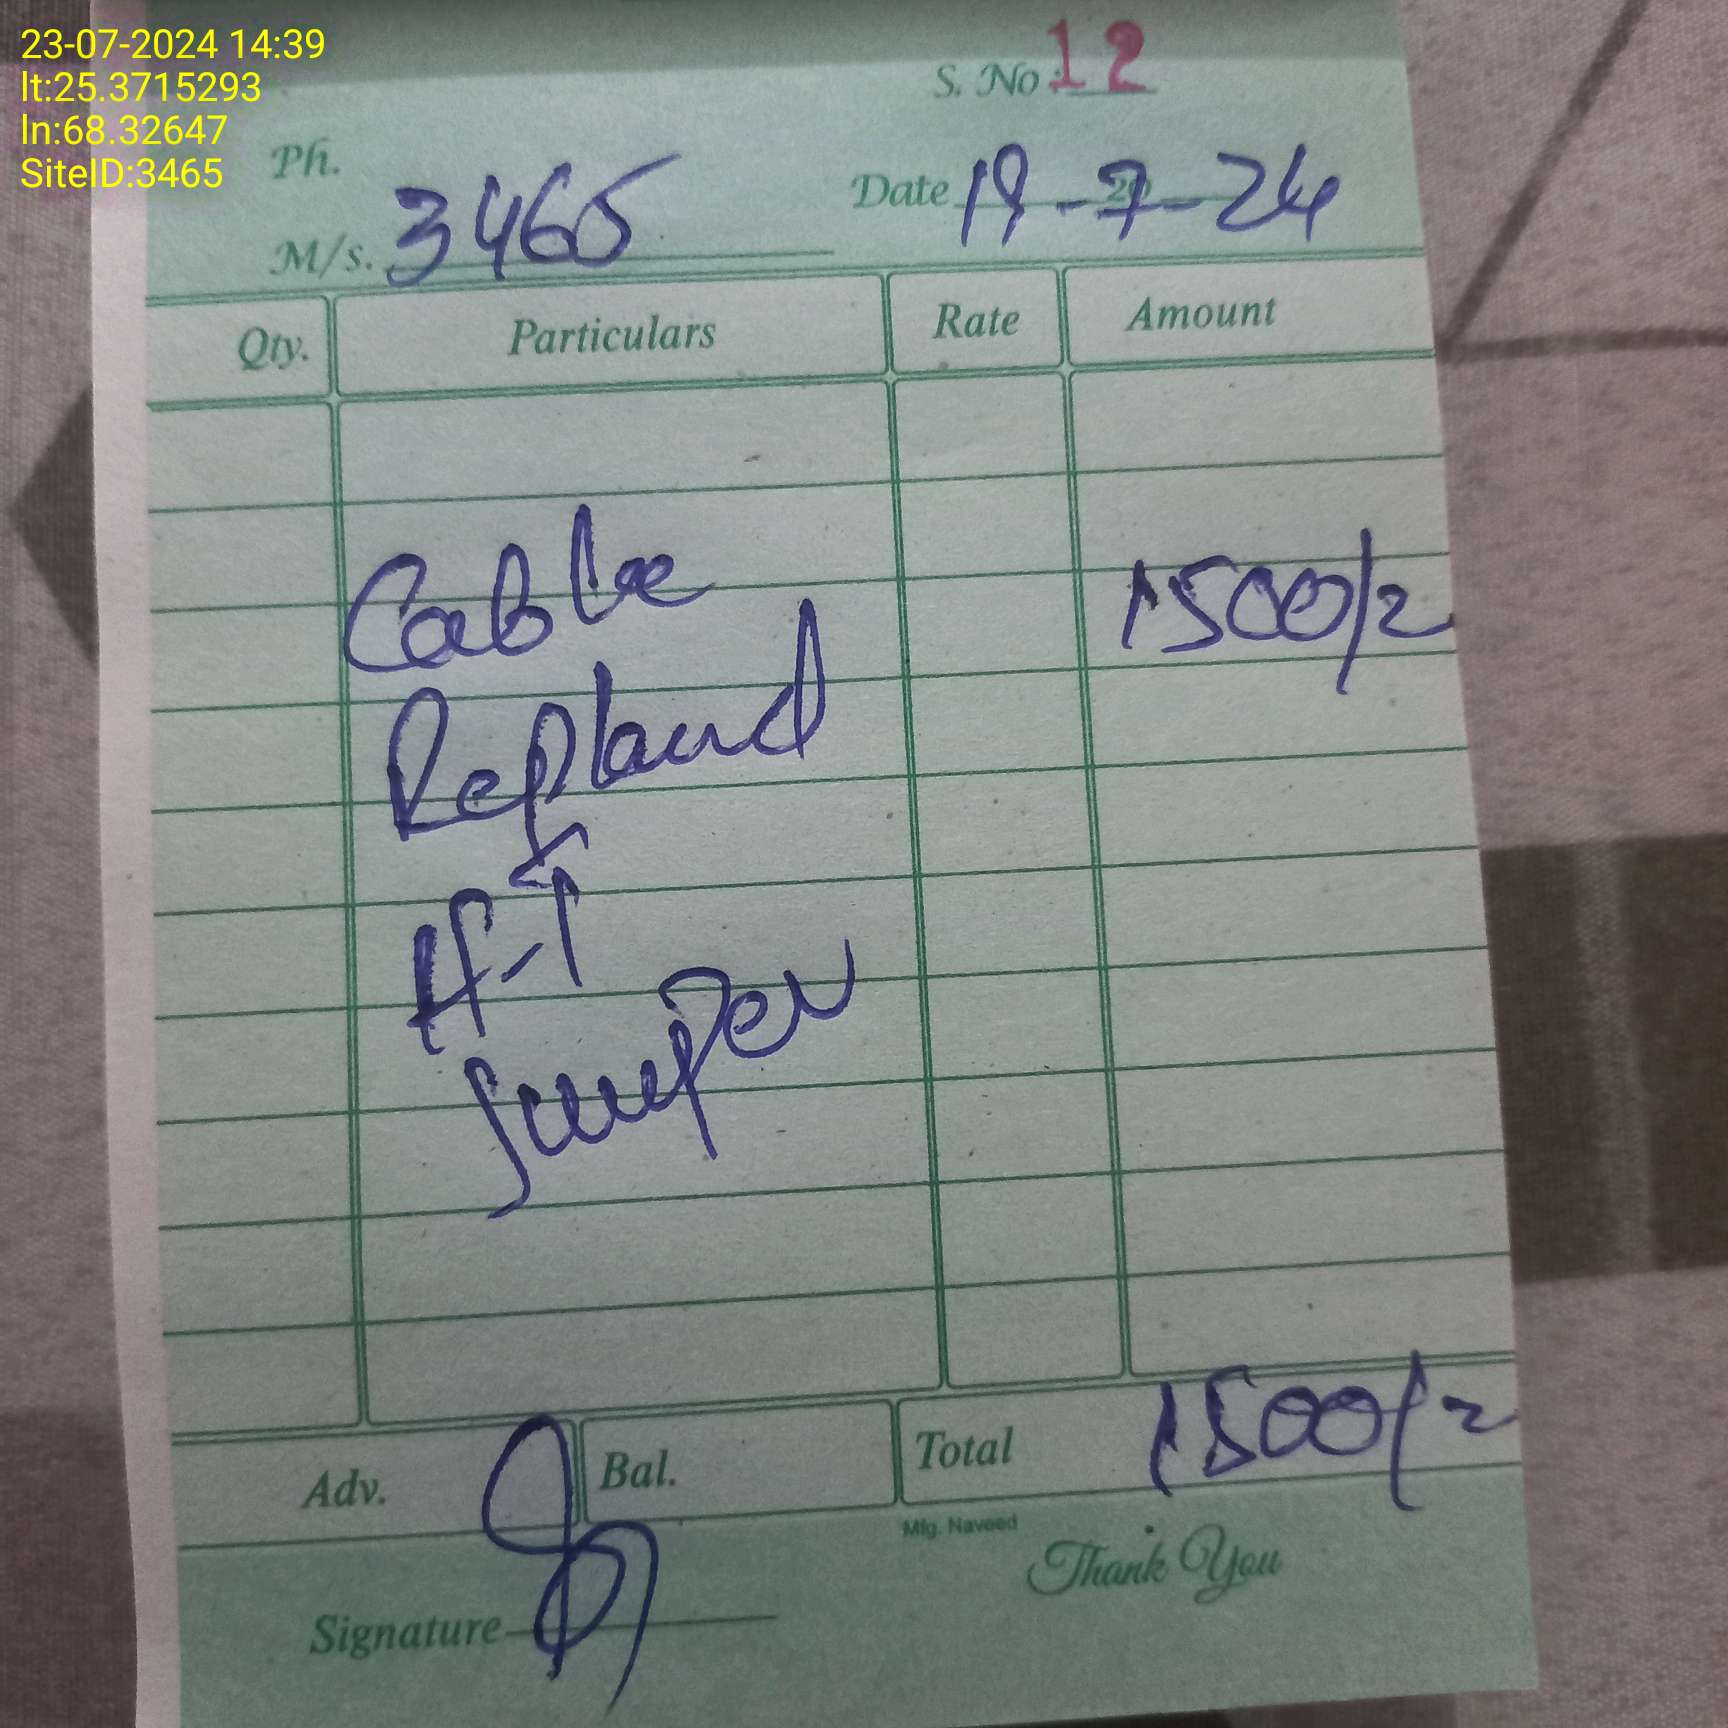 23-07-2024 14:39
lt:25.3715293
ln:68.32647
SiteID:3465
S. No 12
Ph.
M/s. 3465
Date 19-7-24
Qty. Particulars Rate Amount
Cable 1500/=
Replaud
&
H-T
Jumper
Adv. Bal. Total 1500/=
Mfg. Naveed
Thank You
Signature